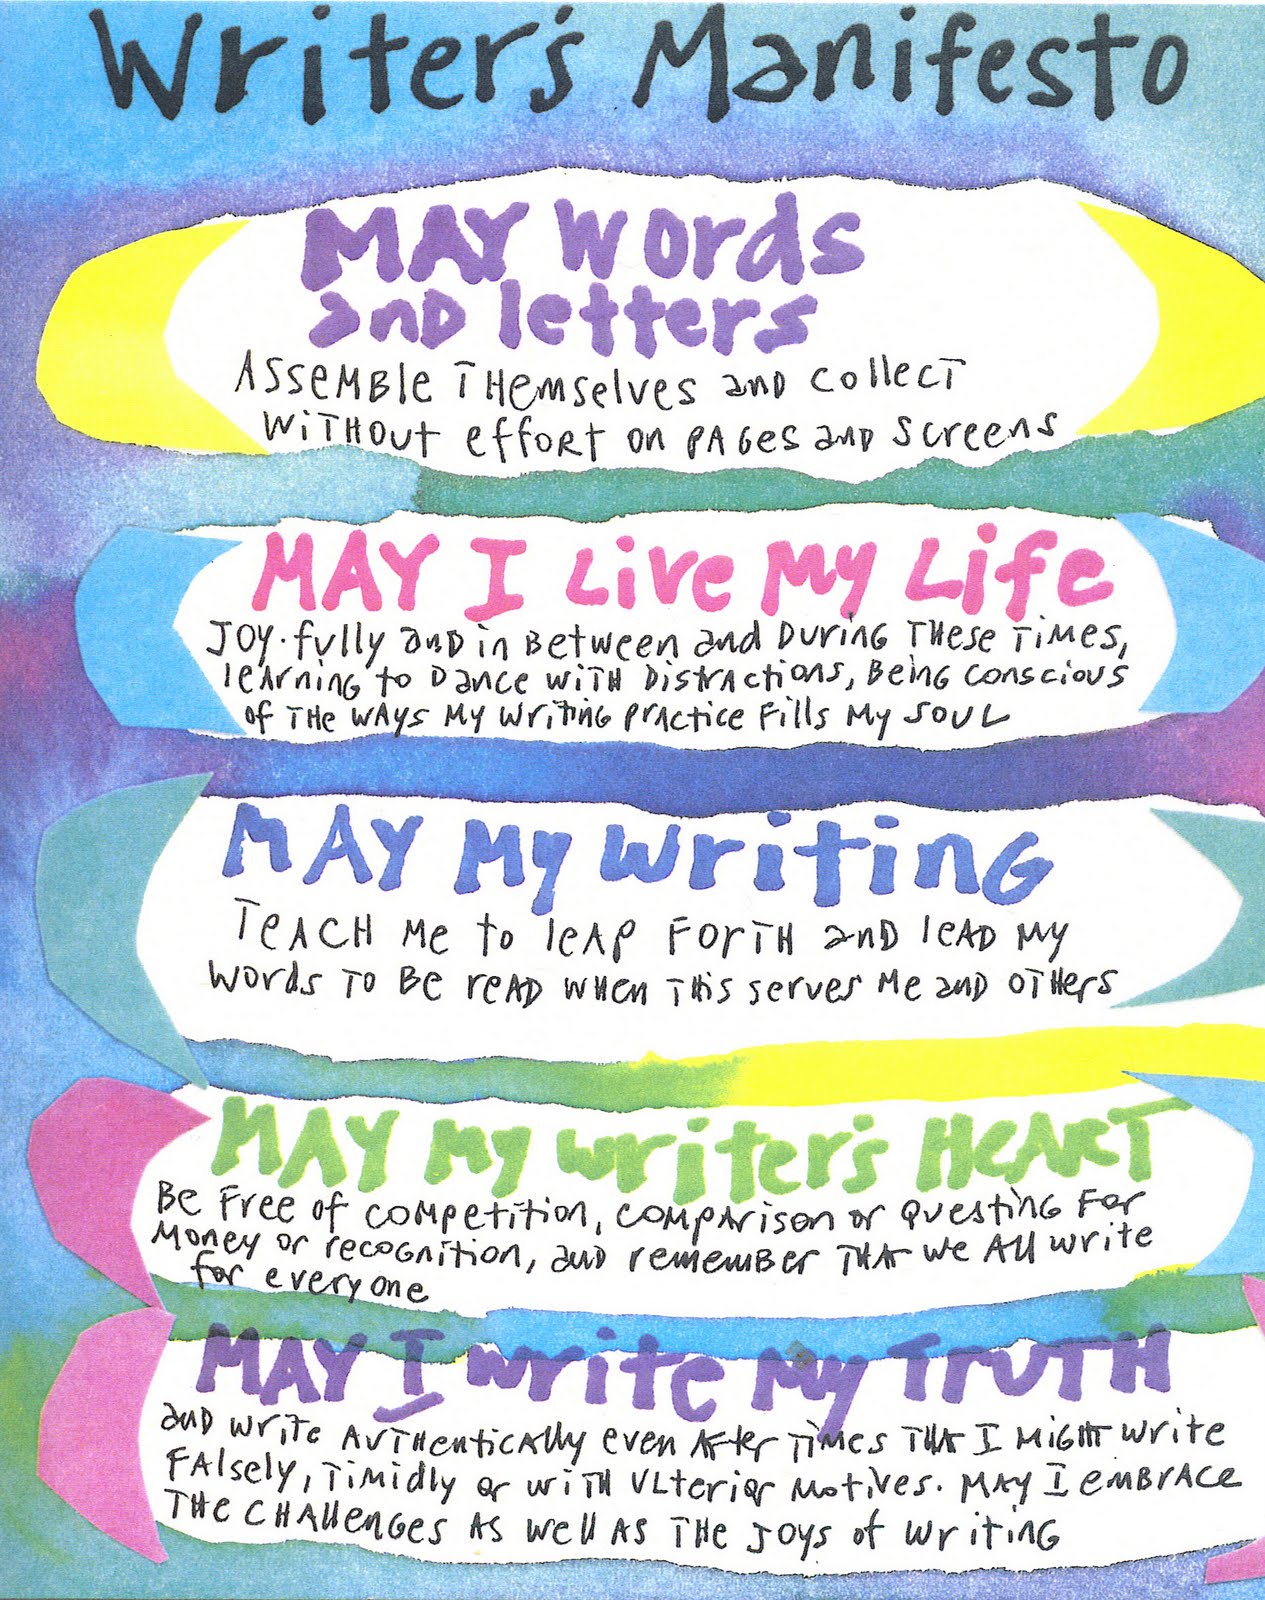 Writer's Manifesto
MAY words
and letters
Assemble themselves and collect
without effort on pages and screens
MAY I Live My Life
Joy·fully and in between and during these times,
learning to dance with distractions, being conscious
of the ways my writing practice fills my soul
MAY My writing
Teach me to leap forth and lead my
words to be read when this serves me and others
MAY My writer's HEART
Be free of competition, comparison or questing for
money or recognition, and remember that we all write
for everyone
MAY I write My TRUTH
and write authentically even after times that I might write
falsely, timidly or with ulterior motives. May I embrace
the challenges as well as the joys of writing